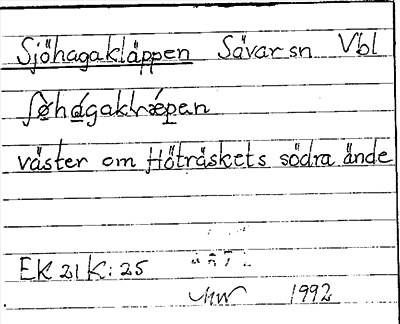 Sjöhagakläppen Sävar sn Vbl
ʃø̱hágaklǽpen
väster om Höträskets södra ände
EK 21 K: 25
1992